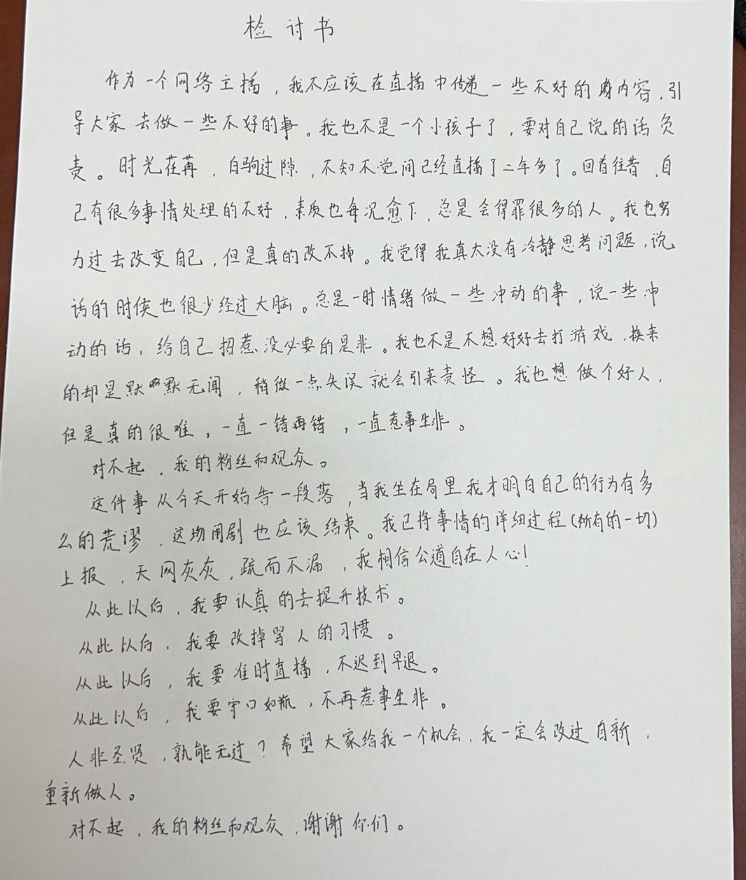 检讨书
作为一个网络主播，我不应该在直播中传递一些不好的内容，引
导大家去做一些不好的事。我也不是一个小孩子了，要对自己说的话负
责。时光荏苒，白驹过隙，不知不觉间已经直播了二年多了。回首往昔，自
己有很多事情处理的不好，素质也每况愈下，总是会得罪很多的人。我也努
力过去改变自己，但是真的改不掉。我觉得我真太没有冷静思考问题，说
话的时侯也很少经过大脑。总是一时情绪做一些冲动的事，说一些冲
动的话，给自己招惹没必要的是非。我也不是不想好好去打游戏，换来
的却是默默无闻，稍做一点失误就会引来责怪。我也想做个好人，
但是真的很难，一直一错再错，一直惹事生非。
对不起，我的粉丝和观众。
这件事从今天开始告一段落，当我坐在局里我才明白自己的行为有多
么的荒谬，这场闹剧也应该结束。我已将事情的详细过程(所有的一切)
上报，天网灰灰，疏而不漏，我相信公道自在人心！
从此以后，我要认真的去提升技术。
从此以后，我要改掉骂人的习惯。
从此以后，我要准时直播，不迟到早退。
从此以后，我要守口如瓶，不再惹事生非。
人非圣贤，孰能无过？希望大家给我一个机会，我一定会改过自新，
重新做人。
对不起，我的粉丝和观众，谢谢你们。